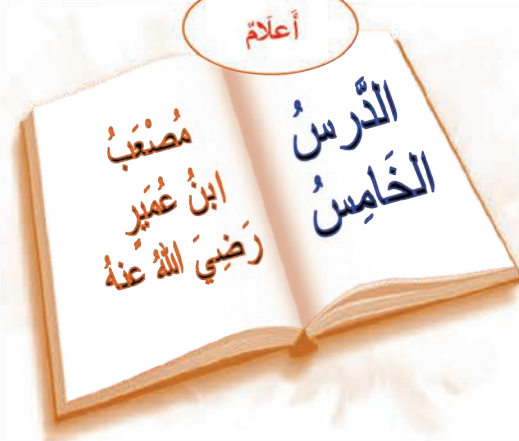 أَعلَامٌ
الدَّرسُ
الخَامِسُ
مُصْعَبُ
ابنُ عُمَيرٍ
رَضِيَ اللهُ عَنهُ